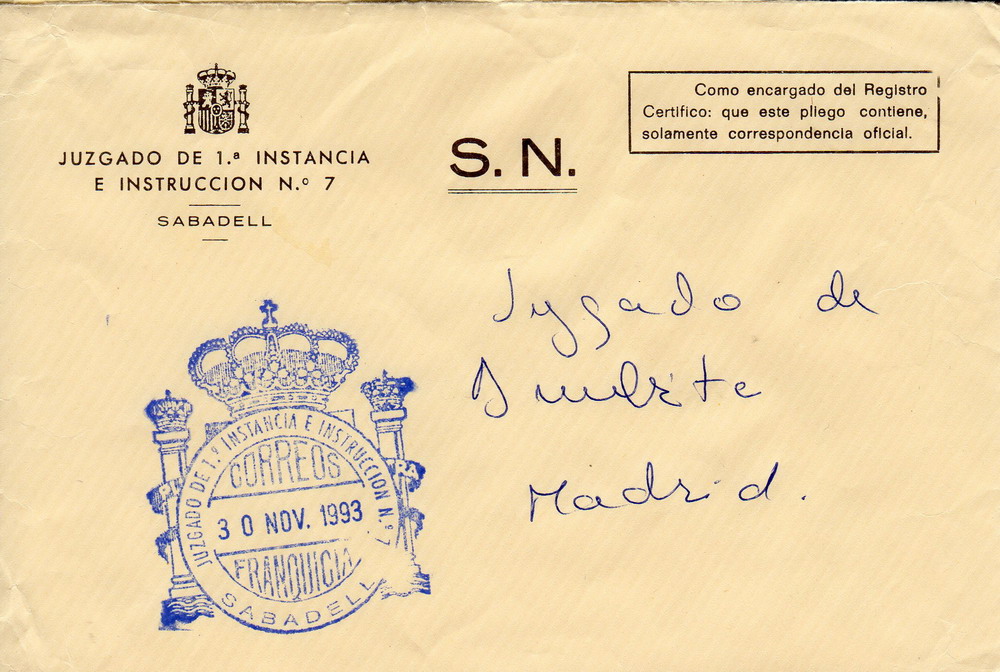 JUZGADO DE 1.ª INSTANCIA
E INSTRUCCION N.º 7
SABADELL
S. N.
Como encargado del Registro
Certifico: que este pliego contiene,
solamente correspondencia oficial.
Juzgado de
Madrid.
JUZGADO DE 1.ª INSTANCIA E INSTRUCCION N.º 7
CORREOS
30 NOV. 1993
FRANQUICIA
SABADELL